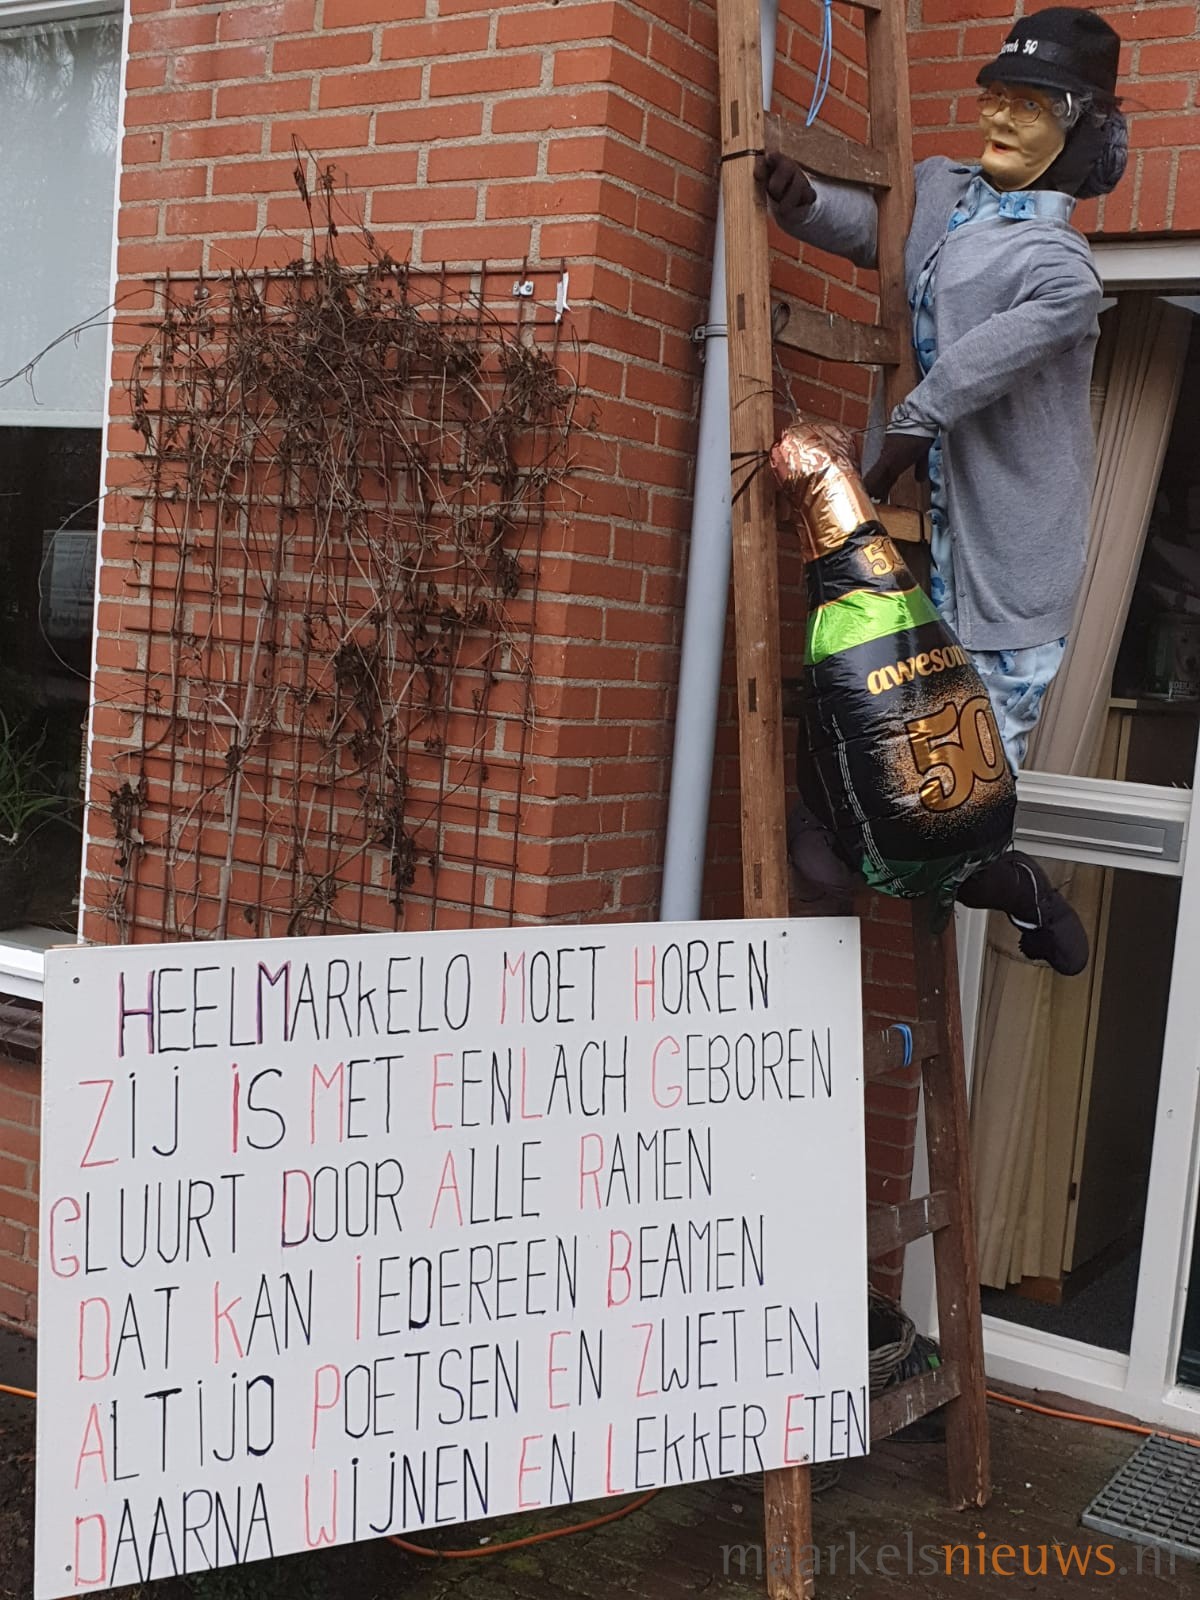 Sarah 50
50
awesom
50
HEELMARKELO MOET HOREN
ZIJ IS MET EENLACH GEBOREN
GLUURT DOOR ALLE RAMEN
DAT KAN IEDEREEN BEAMEN
ALTIJD POETSEN EN ZWETEN
DAARNA WIJNEN EN LEKKER ETEN
maarkelsnieuws.nl